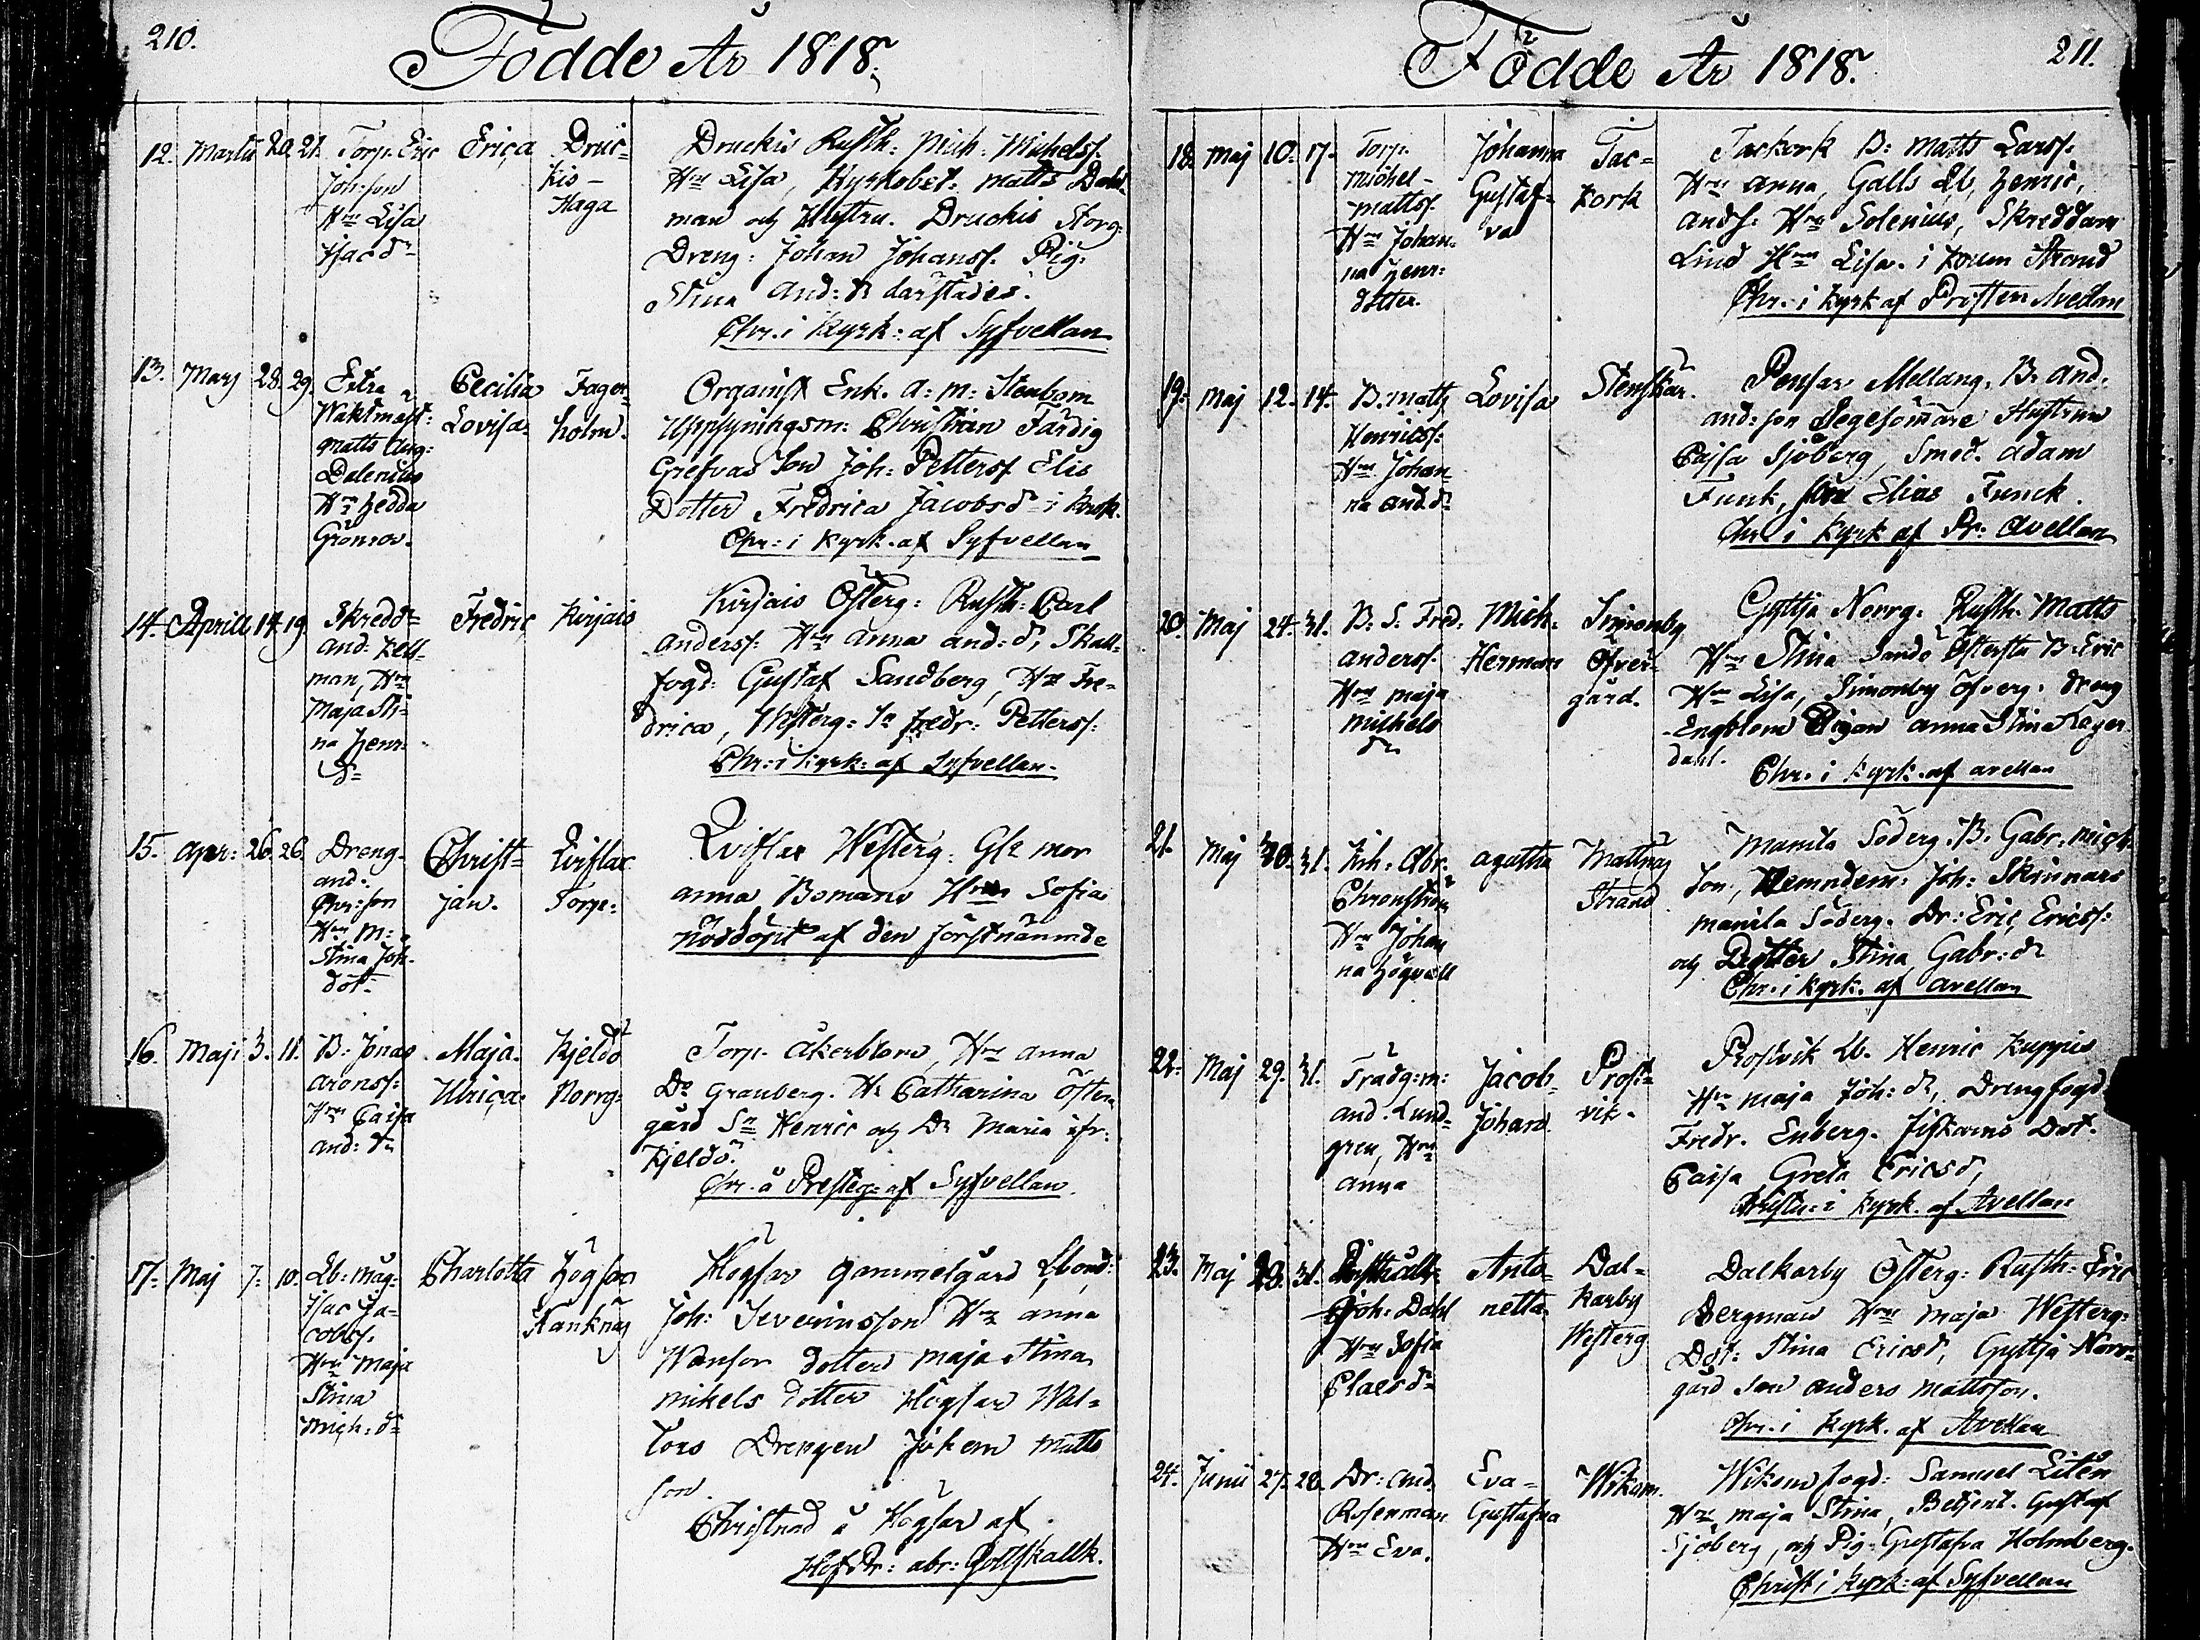 210.
Födde År 1818.
12. Martii 20. 21. Torp. Eric
Joh:son
Hru Lisa
Isacs dr
Erica
Druc-
kis-
Haga
Druckis Rusth: Mich: Michelss.
Hru Lisa, Kyrkobet: Matts Dahl
man och Hustru. Druckis Storg:
Dreng: Johan Johanss. Pig:
Stina And: dr därstädes.
Chr. i Kyrk: af Syfvellan
13. Mars 28. 29. Extra
Waktmest:
Matts Aug:
Dalenius
Hru Hedda
Grönroos.
Cecilia
Lovisa.
Fager-
holm.
Organist Enk. A: M: Stenbom
Uppsyningsm: Christian Färdig
Grefvas Son Joh: Petterss Elis
Dotter Fredrica Jacobs dr i Kyrk.
Chr: i Kyrk. af Syfvellan
14. Aprill 14. 19. Skredd:
And: Kell-
man, Hru
Maja Sti-
na Henr:
dr
Fredric
Kirjais
Kirjais Österg: Rusth: Carl
Anderss. Hru Anna And: dr, Skall-
fogd: Gustaf Sandberg, Hru Fre-
drica, Westerg: Sn Fredr: Petterss:
Chr: i Kyrk: af Syfvellan.
15. Apr: 26. 26. Dreng.
And:
Chr:son
Hru M:
Stina Joh-
dot:
Christ-
jan.
Qviflax
Torp:
Qviflax Westerg: Gla mor
Anna Bomans Hru Sofia
Nöddöpt af den förstnämnde
16. Maji 3. 11. B: Jonas
Aronss:
Hru Caisa
And: dr
Maja
Ulrica
Kjeldö
Norrg:
Torp. Åkerblom, Hru Anna
Do Granberg. Hr Catharina Öster
gård Sn Henric och Dr Maria ifr:
Kjeldö.
Chr. å Presteg: af Syfvellan.
17. Maj 7. 10. Lb: Måg:
Isac Ja-
cobss.
Hru Maja
Stina
Mich: dr
Charlotta
Högsar
Nanknäs
Högsar Gammelgård Lbond:
Joh: Severinsson Hru Anna
Wansor dotter Maja Stina
Mikels dotter Högsar Wal-
tors Drengen Johan Matts
son.
Christnad å Högsar af
Hof Pr: Abr: Gottskallk.
211.
Födde År 1818.
18. Maj 10. 17. Torp.
Michel
Mattss.
Hru Johan-
na Henr:
dotter.
Johanna
Gustaf-
va
Tac-
kork
Tackork B: Matts Larss.
Hru Anna, Galls Lb. Henric,
Ands: Hru Solenius, Skreddare
Lind Hru Lisa. i Strand
Chr. i Kyrk af Prosten Avellan
19. Maj 12. 14. B. Matts
Henricss:
Hru Johan
na And. dr
Lovisa
Stenskär.
Pensar Mellang. B. And.
And:son Segelsömmare Hustrun
Cajsa Sjöberg, Smed. Adam
Funk, Elias Funck.
Chr i Kyrk af Pr: Avellan
20. Maj 24. 31. B. S. Fred.
Anderss.
Hru Maja
Mickels
dr
Mich.
Herman
Simonby
Öfver-
gård.
Gyttja Norrg. Rusth. Matts
Hru Stina Sandö B: Eric
Hru Lisa, Simonby Öfverg. Dreng
Engblom Pigan Anna Stina Lager
dahl.
Chr. i Kyrk. af Avellan
21. Maj 30. 31. Inh: Abr.
Chronström
Hru Johan
na Högvall
Agatha
Mattnäs
Strand
Manila Söderg. B. Gabr. Mich.
son, Nemndem. Joh: Skinnars
Manila Söderg. Dr: Eric Ericss:
och Dotter Stina Gabr: dr
Chr. i Kyrk. af Avellan
22. Maj 29. 31. Trädg:m:
And. Lund-
gren, Hru
Anna
Jacob
Johan
Prost-
vik.
Prostvik Lb. Henric Kuppis
Hru Maja Joh: dr, Drengfogd
Fredr. Enberg. Fiskarens Dot.
Caisa Greta Erics dr,
Christn: i Kyrk. af Avellan
23. Maj 29. 31.
Joh: Dahl
Hru Sofia
Claes dr
Anto-
netta
Dal-
karby
Westerg
Dalkarby Österg: Rusth: Eric
Bergman Hru Maja Westerg:
Dot: Stina Ericsd, Gyttja Norr-
gård Son Anders Mattsson.
Chr. i Kyrk. af Avellan
24. Junii 27. 28. Dr: And.
Rosenman
Hru Eva.
Eva-
Gustafva
Wikom.
Wikom fogd: Samuel Litén
Hru Maja Stina, Betjent. Gustaf
Sjöberg, och Pig: Gustafva Holmberg.
Christ i Kyrk: af Syfvellan